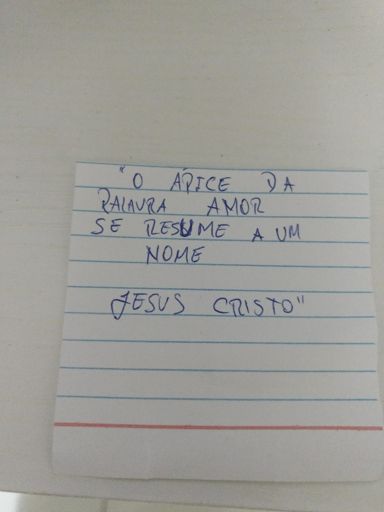 "O ÁPICE DA
PALAVRA AMOR
SE RESUME A UM
NOME
JESUS CRISTO"